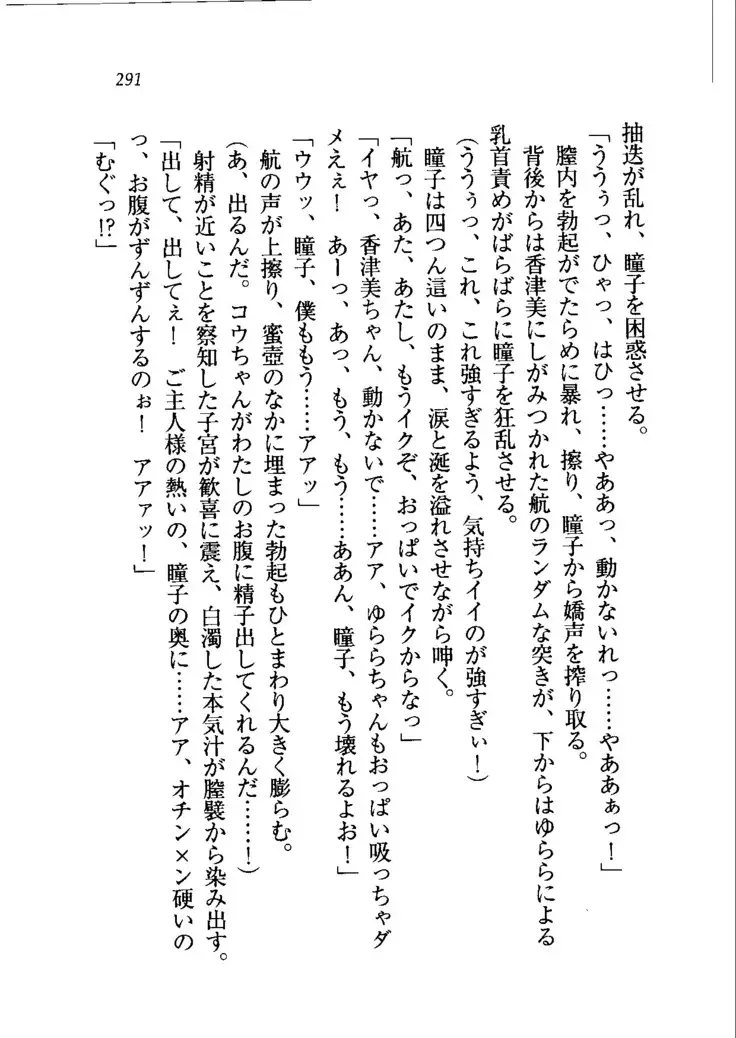 291
抽迭が乱れ、瞳子を困惑させる。
「ううぅっ、ひゃっ、はひっ……やああっ、動かないれっ……やああぁっ！」
膣内を勃起がでたらめに暴れ、擦り、瞳子から嬌声を搾り取る。
背後からは香津美にしがみつかれた航のランダムな突きが、下からはゆららによる
乳首責めがばらばらに瞳子を狂乱させる。
（ううぅっ、これ、これ強すぎるよう、気持ちイイのが強すぎぃ！）
瞳子は四つん這いのまま、涙と涎を溢れさせながら呻く。
「航っ、あた、あたし、もうイクぞ、おっぱいでイクからなっ」
「イヤっ、香津美ちゃん、動かないで……アア、ゆららちゃんもおっぱい吸っちゃダ
メえぇ！　あーっ、あっ、もう、もう……ああん、瞳子、もう壊れるよお！」
「ウウッ、瞳子、僕ももう……アアッ」
航の声が上擦り、蜜壺のなかに埋まった勃起もひとまわり大きく膨らむ。
（あ、出るんだ。コウちゃんがわたしのお腹に精子出してくれるんだ……！）
射精が近いことを察知した子宮が歓喜に震え、白濁した本気汁が膣襞から染み出す。
「出して、出してぇ！　ご主人様の熱いの、瞳子の奥に……アア、オチン×ン硬いの
っ、お腹がずんずんするのぉ！　アアァッ！」
「むぐっ!?」